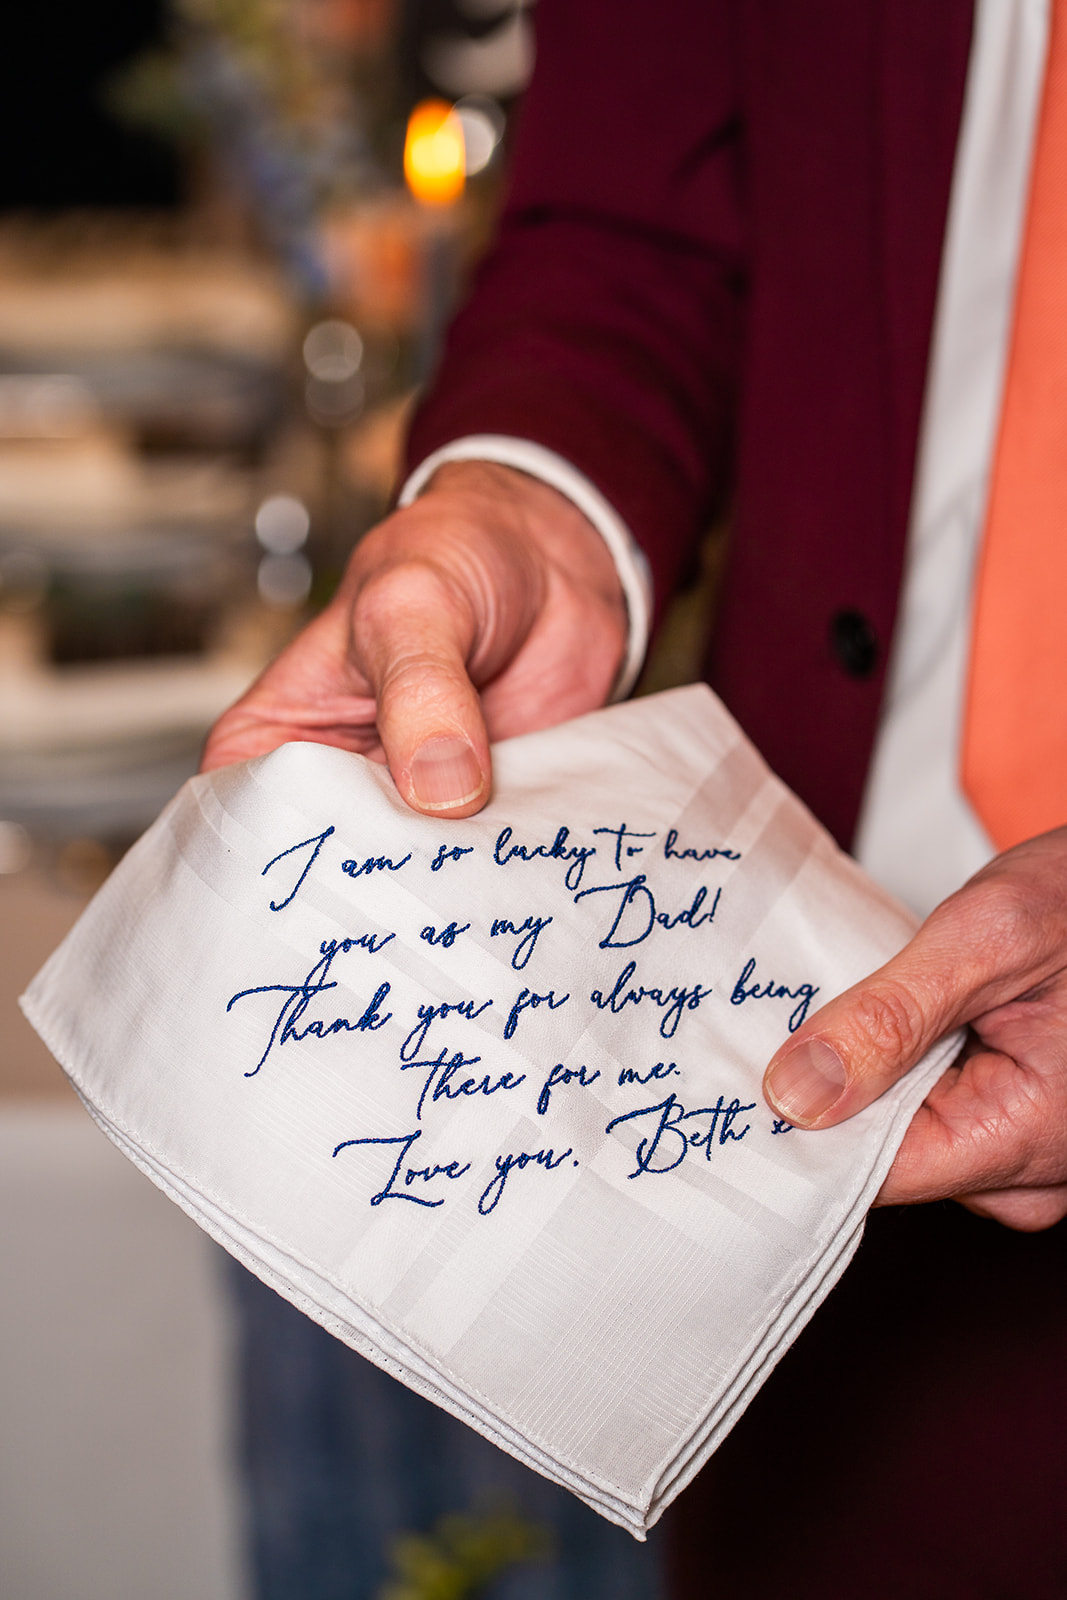 I am so lucky to have
you as my Dad!
Thank you for always being
there for me.
Love you. Beth